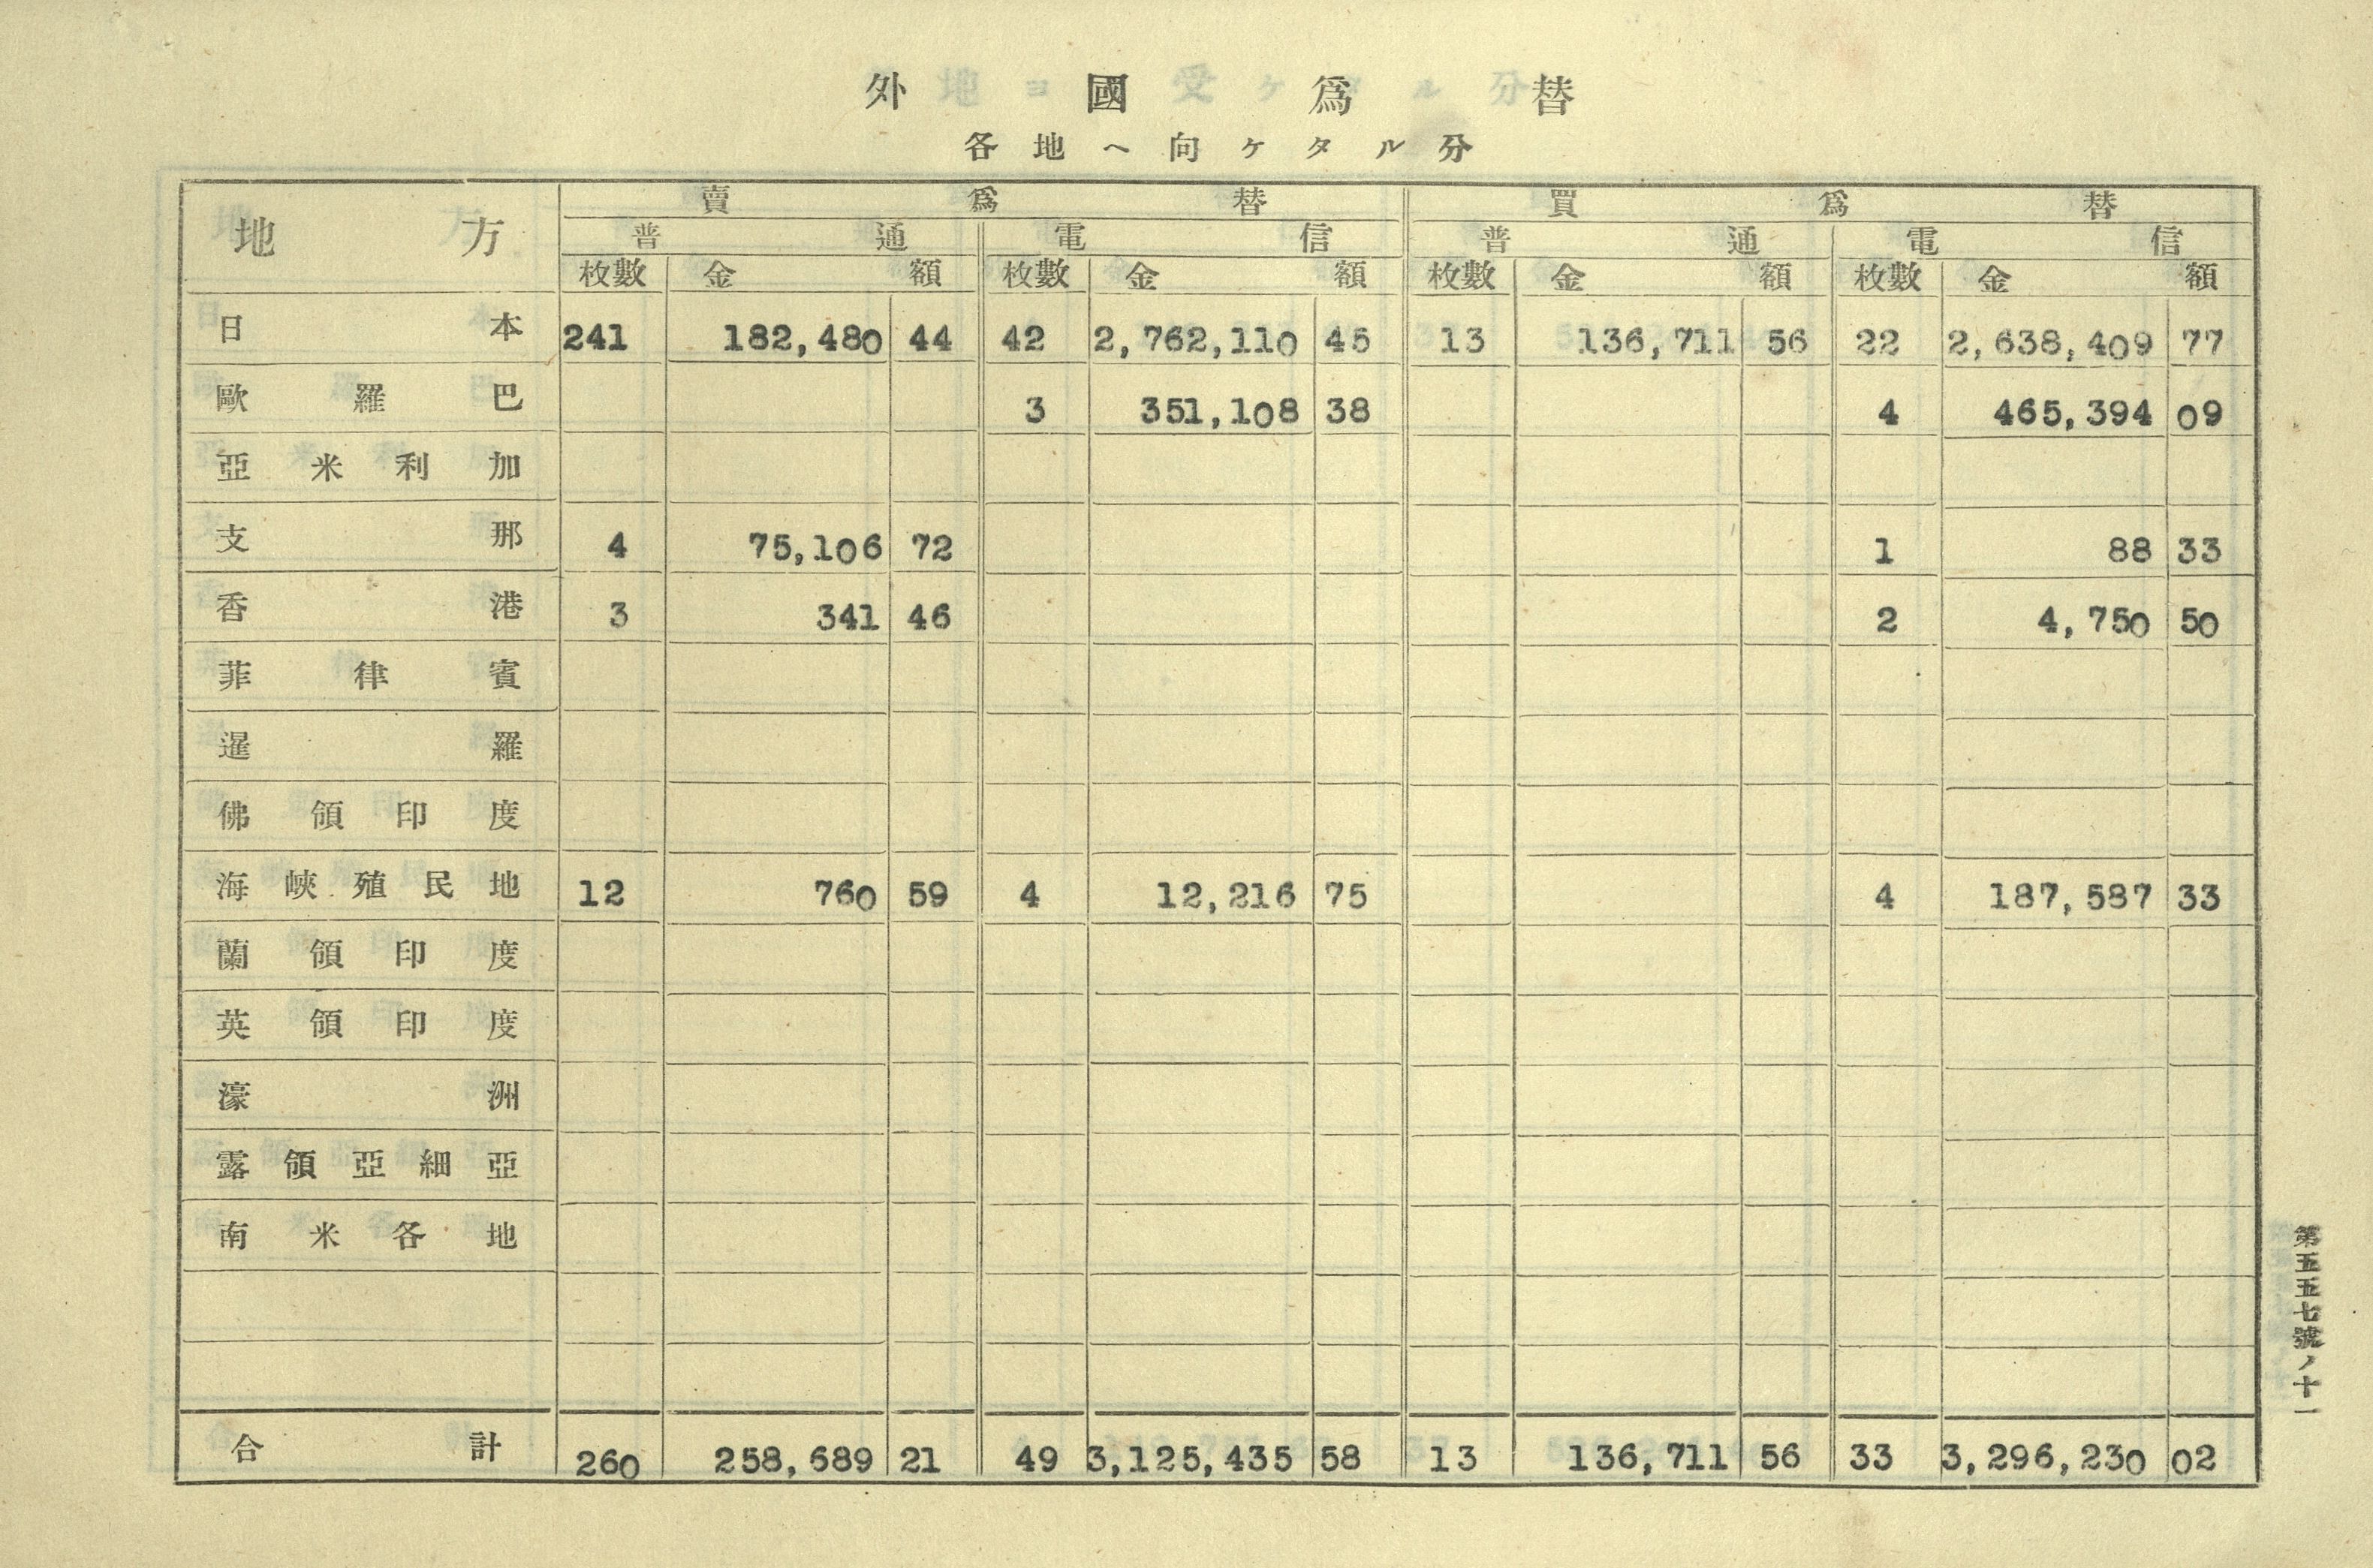 外國爲替
各地へ向ケタル分
地方 賣爲替 買爲替
普通 電信 普通 電信
枚數 金額 枚數 金額 枚數 金額 枚數 金額
日本 241 182,480 44 42 2,762,110 45 13 136,711 56 22 2,638,409 77
歐羅巴 3 351,108 38 4 465,394 09
亞米利加
支那 4 75,106 72 1 88 33
香港 3 341 46 2 4,750 50
菲律賓
暹羅
佛領印度
海峽殖民地 12 760 59 4 12,216 75 4 187,587 33
蘭領印度
英領印度
濠洲
露領亞細亞
南米各地
合計 260 258,689 21 49 3,125,435 58 13 136,711 56 33 3,296,230 02
第五五七號ノ十一